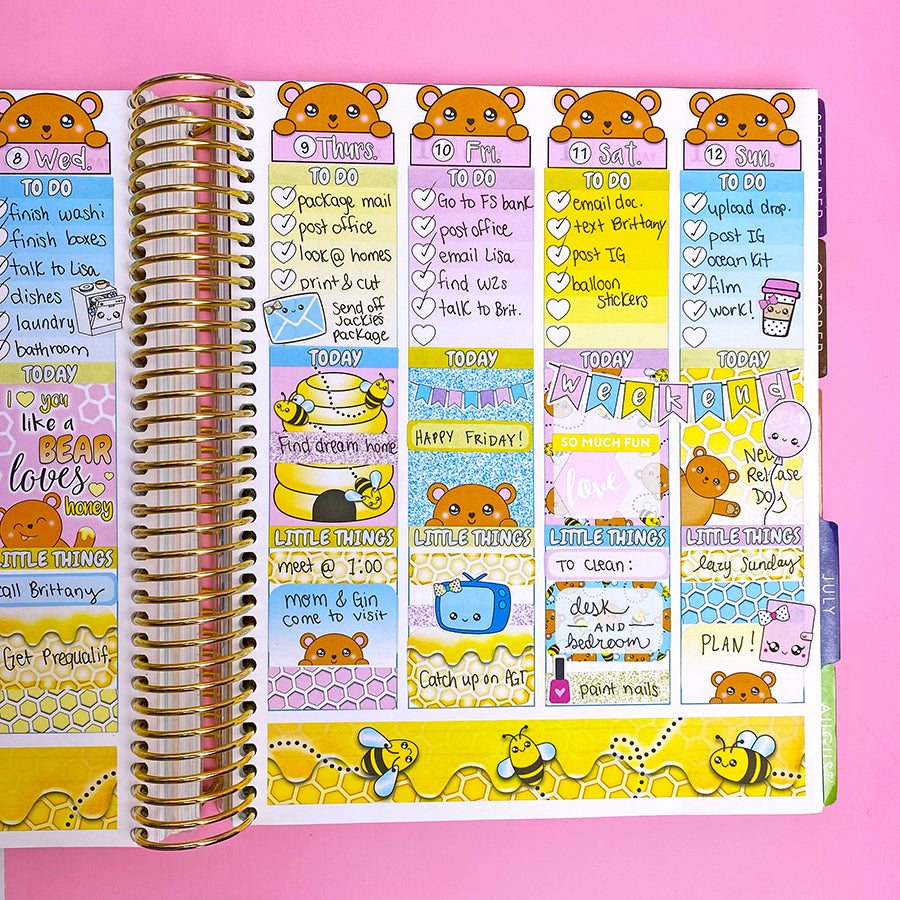 8 Wed.
TO DO
finish washi
finish boxes
talk to Lisa
dishes
laundry
bathroom
TODAY
I you
like a
BEAR
loves
honey
LITTLE THINGS
call Brittany
Get Prequalif.
9 Thurs.
TO DO
package mail
post office
look @ homes
print & cut
send off
Jackies
package
TODAY
Find dream home
LITTLE THINGS
meet @ 1:00
mom & Gin
come to visit
10 Fri.
TO DO
Go to FS bank
post office
email Lisa
find W2s
talk to Brit.
TODAY
HAPPY FRIDAY!
LITTLE THINGS
Catch up on AGT
11 Sat.
TO DO
email doc.
text Brittany
post IG
balloon
stickers
TODAY
Weekend
SO MUCH FUN
love
LITTLE THINGS
TO Clean:
desk
AND
bedroom
paint nails
12 Sun.
TO DO
upload drop.
post IG
ocean kit
film
work!
TODAY
New
Release
Day
LITTLE THINGS
lazy Sunday
PLAN!
SEPTEMBER
OCTOBER
JULY
AUGUST